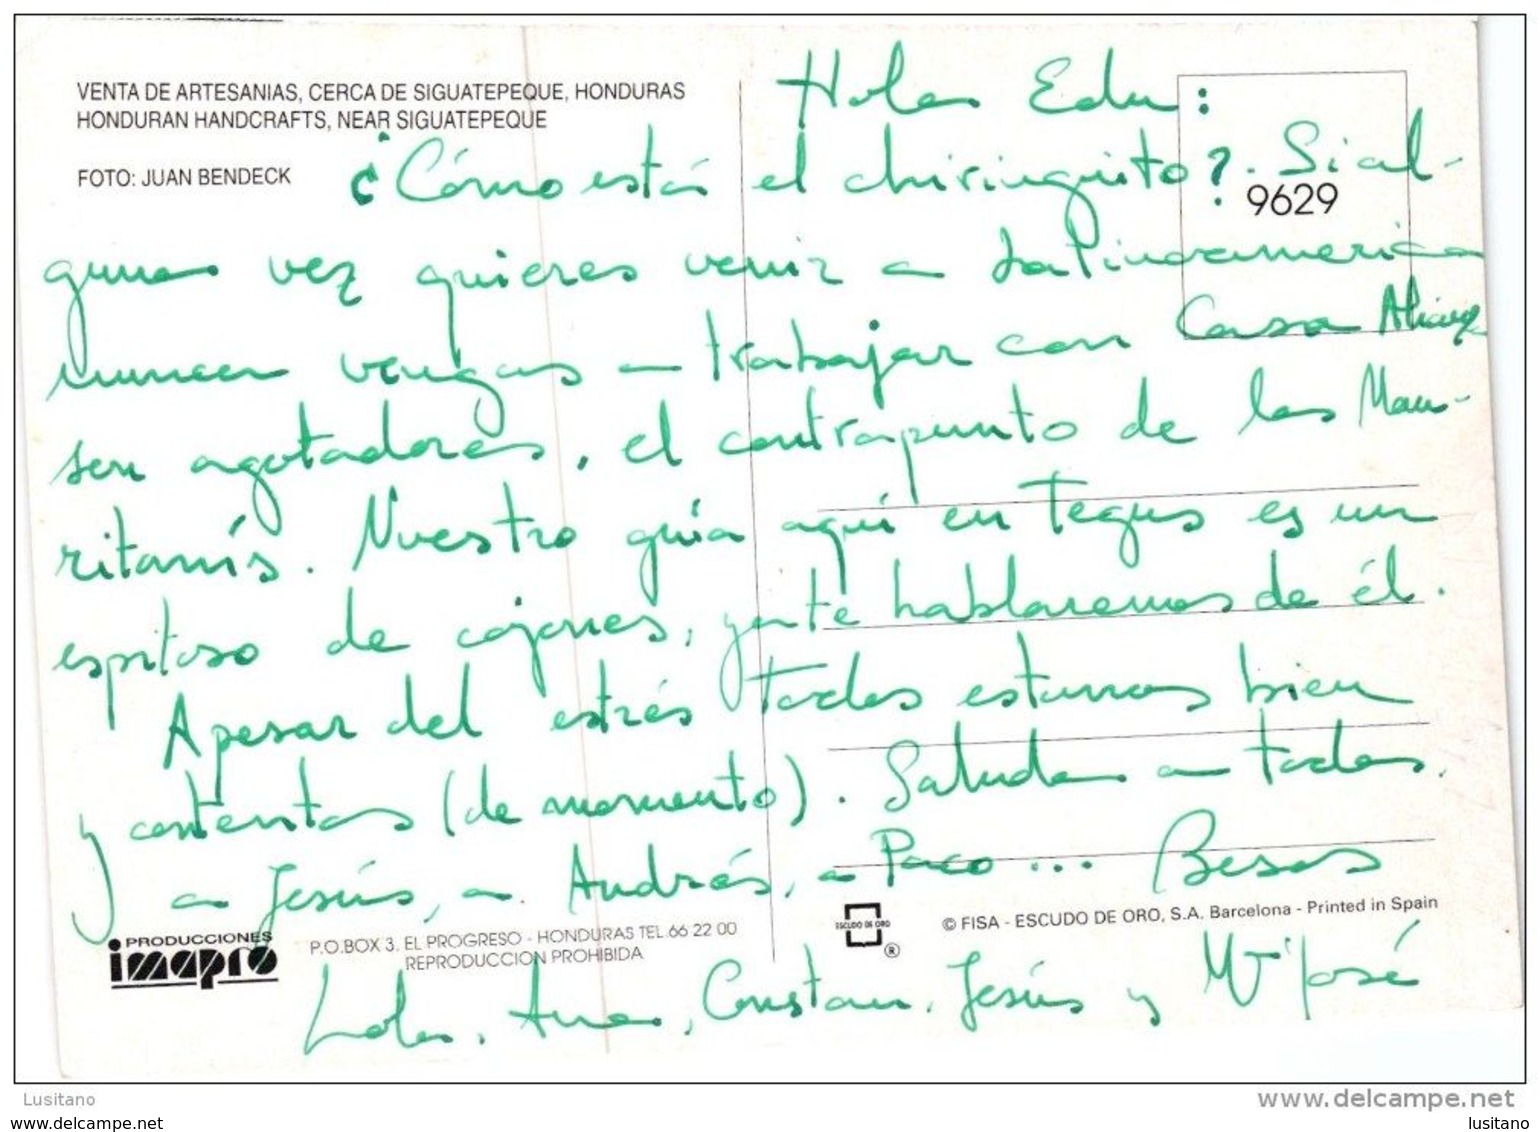 VENTA DE ARTESANIAS, CERCA DE SIGUATEPEQUE, HONDURAS
HONDURAN HANDCRAFTS, NEAR SIGUATEPEQUE
FOTO: JUAN BENDECK
9629
Hola Edu:
¿Cómo está el chiringuito?. Si al-
guna vez quieres venir a Latinoamerica
nunca vengas a trabajar con Casa Alianza
son agotadores, el contrapunto de los Mau-
ritanís. Nuestro guía aquí en Tegus es un
espitoso de cojones, ya te hablaremos de él.
A pesar del estrés todos estamos bien
y contentos (de momento). Saluda a todos,
a Jesús, a Andrés, a Paco... Besos
Lola, Ana, Constan, Jesús y Mª José
PRODUCCIONES
imapro
P.O.BOX 3. EL PROGRESO - HONDURAS TEL.66 22 00
REPRODUCCION PROHIBIDA
ESCUDO DE ORO
®
© FISA - ESCUDO DE ORO, S.A. Barcelona - Printed in Spain
Lusitano
www.delcampe.net
www.delcampe.net
lusitano